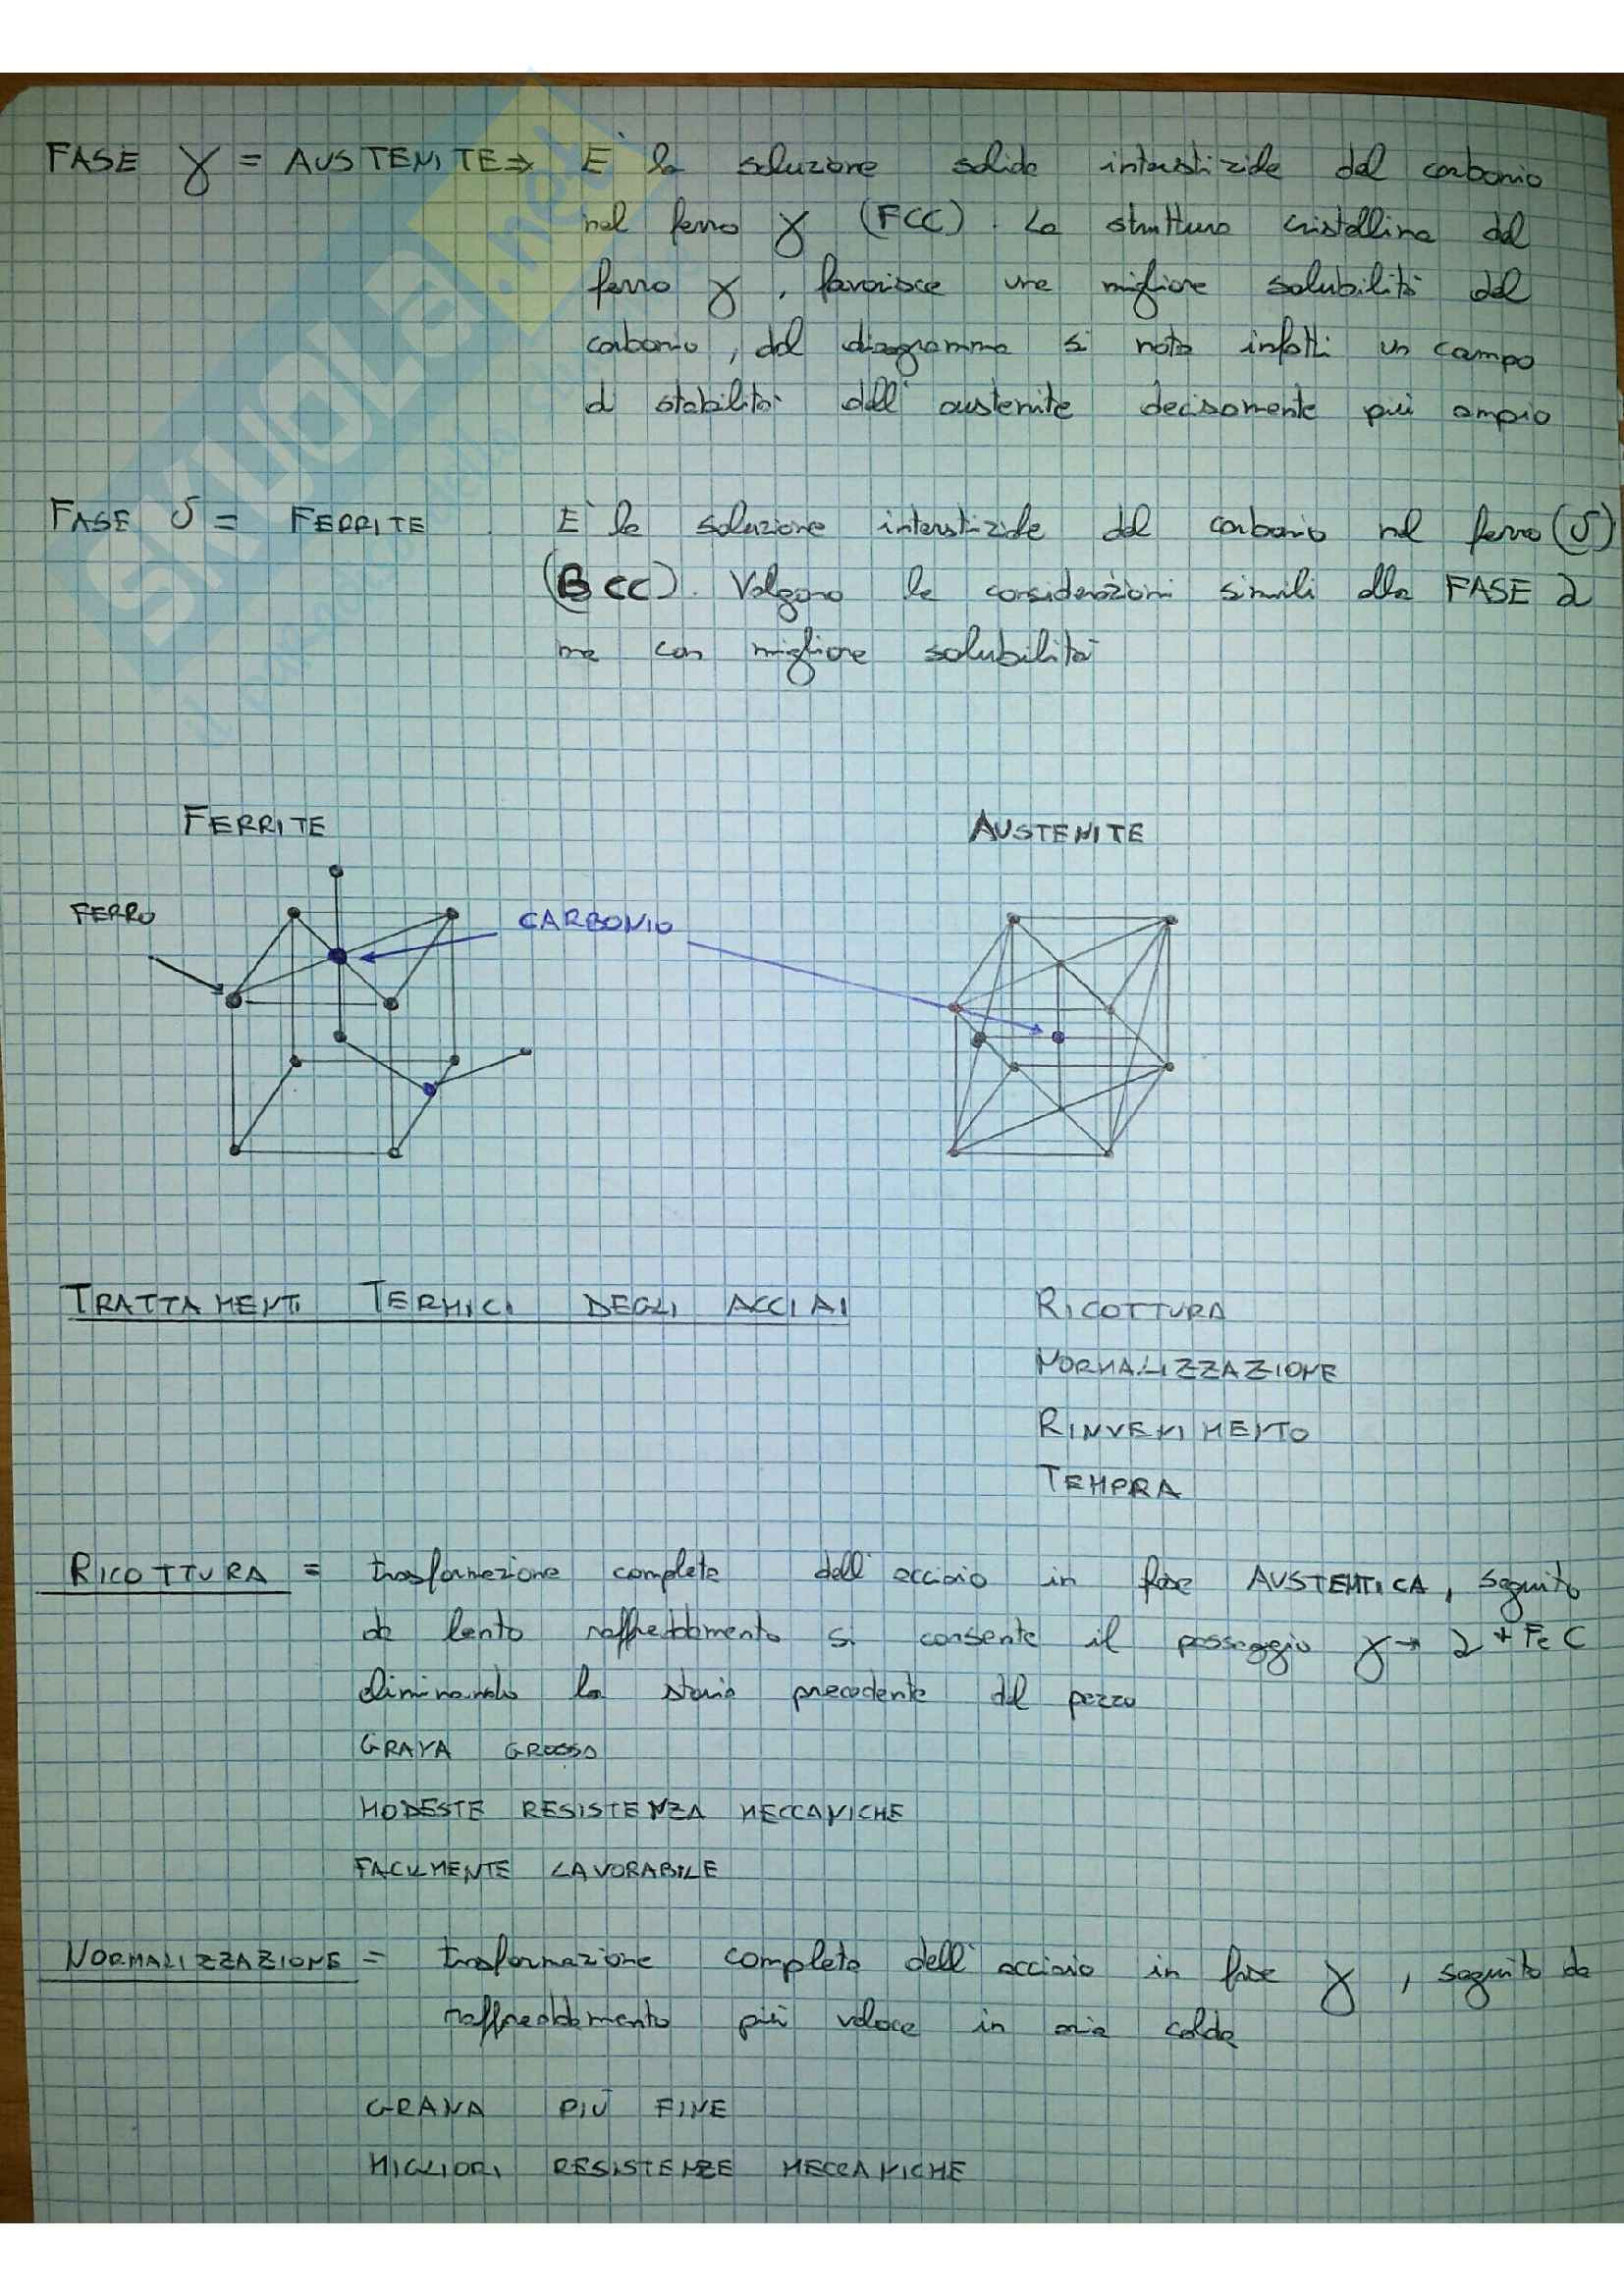 FASE γ = AUSTENITE ⇒ È la soluzione solida interstiziale del carbonio
nel ferro γ (FCC). La struttura cristallina del
ferro γ, favorisce una migliore solubilità del
carbonio, dal diagramma si nota infatti un campo
di stabilità dell'austenite decisamente più ampio
FASE δ = FERRITE È la soluzione interstiziale del carbonio nel ferro (δ)
(BCC). Valgono le considerazioni simili alla FASE α
ma con migliore solubilità
FERRITE
AUSTENITE
FERRO
CARBONIO
TRATTAMENTI TERMICI DEGLI ACCIAI
RICOTTURA
NORMALIZZAZIONE
RINVENIMENTO
TEMPRA
RICOTTURA = trasformazione completa dell'acciaio in fase AUSTENTICA, seguito
da lento raffreddamento si consente il passaggio γ → α + FeC
eliminando la storia precedente del pezzo
GRANA GROSSA
MODESTE RESISTENZA MECCANICHE
FACILMENTE LAVORABILE
NORMALIZZAZIONE = trasformazione completa dell'acciaio in fase γ, seguito da
raffreddamento più veloce in aria calda
GRANA PIÙ FINE
MIGLIORI RESISTENZE MECCANICHE
SKUOLA.net